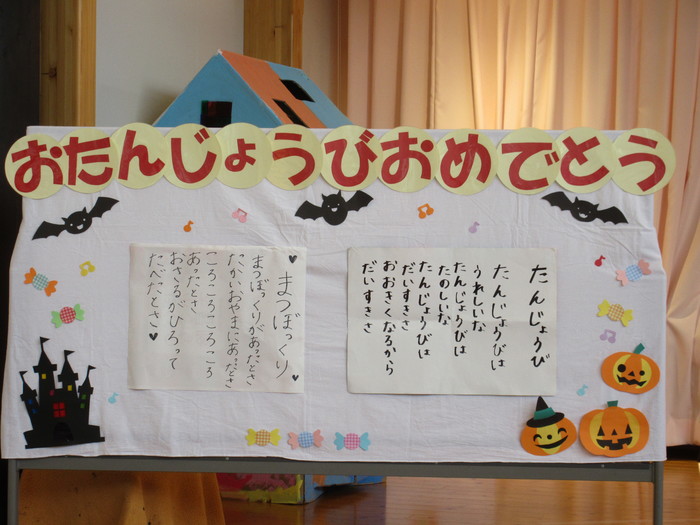 おたんじょうびおめでとう
たんじょうび
たんじょうびは
うれしいな
たんじょうびは
たのしいな
たんじょうびは
だいすきさ
おおきくなるから
だいすきさ
♥ まつぼっくり ♥
まつぼっくりがあったとさ
たかいおやまにあったとさ
ころころころころ
あったとさ
おさるがひろって
たべたとさ♥